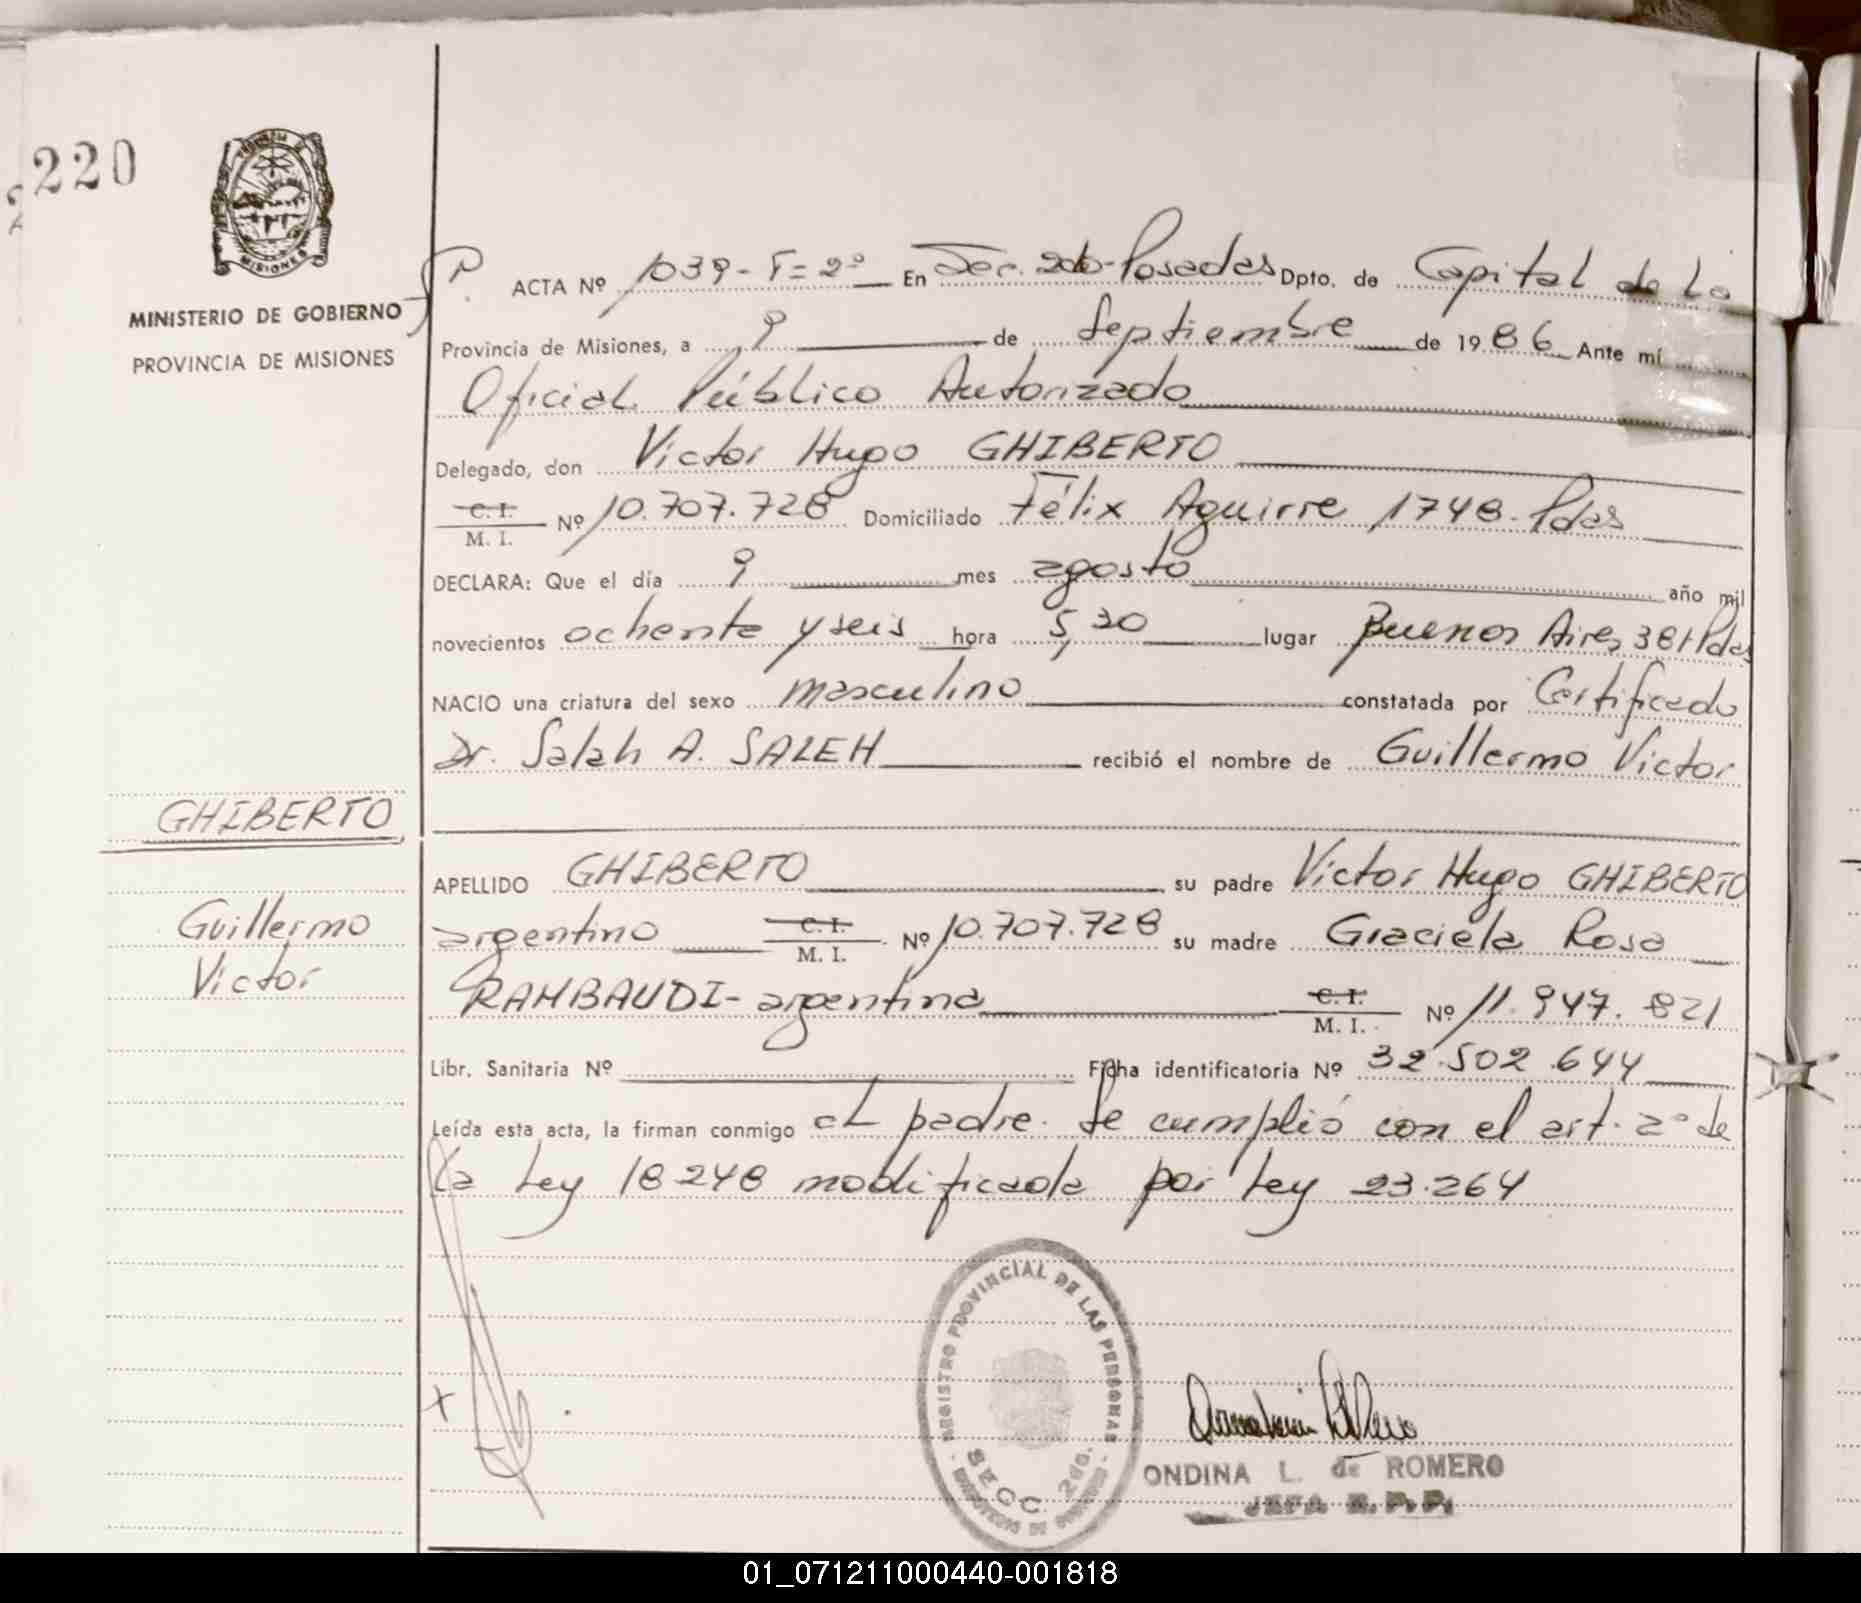 220
MISIONES
MINISTERIO DE GOBIERNO
PROVINCIA DE MISIONES
ACTA Nº 1039 - T = 2º En Sec. 2do - Posadas Dpto. de Capital de la
Provincia de Misiones, a 9 de Septiembre de 1986 Ante mí
Oficial Público Autorizado
Delegado, don Victor Hugo GHIBERTO
C. I.
M. I. Nº 10.707.728 Domiciliado Félix Aguirre 1748 - Pdas
DECLARA: Que el día 9 mes agosto año mil
novecientos ochenta y seis hora 5,30 lugar Buenos Aires 381 Pdas
NACIO una criatura del sexo masculino constatada por Certificado
Dr. Salah A. SALEH recibió el nombre de Guillermo Victor
GHIBERTO
Guillermo
Victor
APELLIDO GHIBERTO su padre Victor Hugo GHIBERTO
argentino C. I.
M. I. Nº 10.707.728 su madre Graciela Rosa
RAMBAUDI - argentina C. I.
M. I. Nº 11.947.821
Libr. Sanitaria Nº Ficha identificatoria Nº 32.502.644
Leída esta acta, la firman conmigo el padre. Se cumplió con el art. 2º de
la Ley 18248 modificada por Ley 23.264
REGISTRO PROVINCIAL DE LAS PERSONAS
SECC. 2DO.
MINISTERIO DE GOBIERNO
ONDINA L. de ROMERO
JEFA R.P.P.
01_071211000440-001818